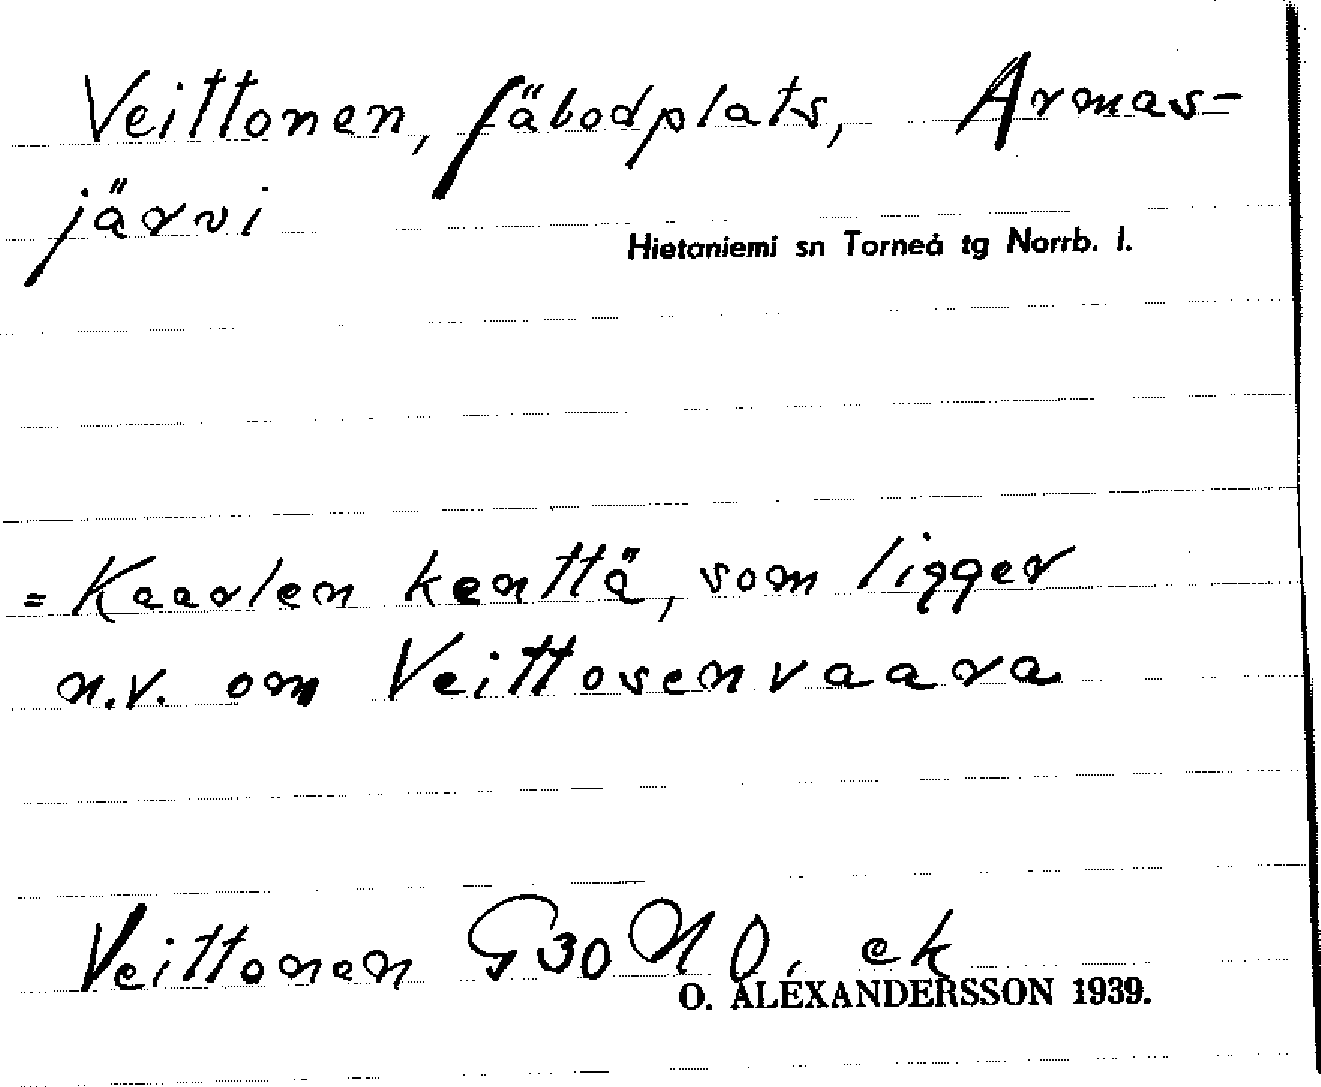 Veittonen, fäbodplats, Armas-
järvi
Hietaniemi sn Torneå tg Norrb. l.
= Kaarlen kenttä, som ligger
n.v. om Veittosenvaara
Veittonen G30 NO. ek
O. ALEXANDERSSON 1939.